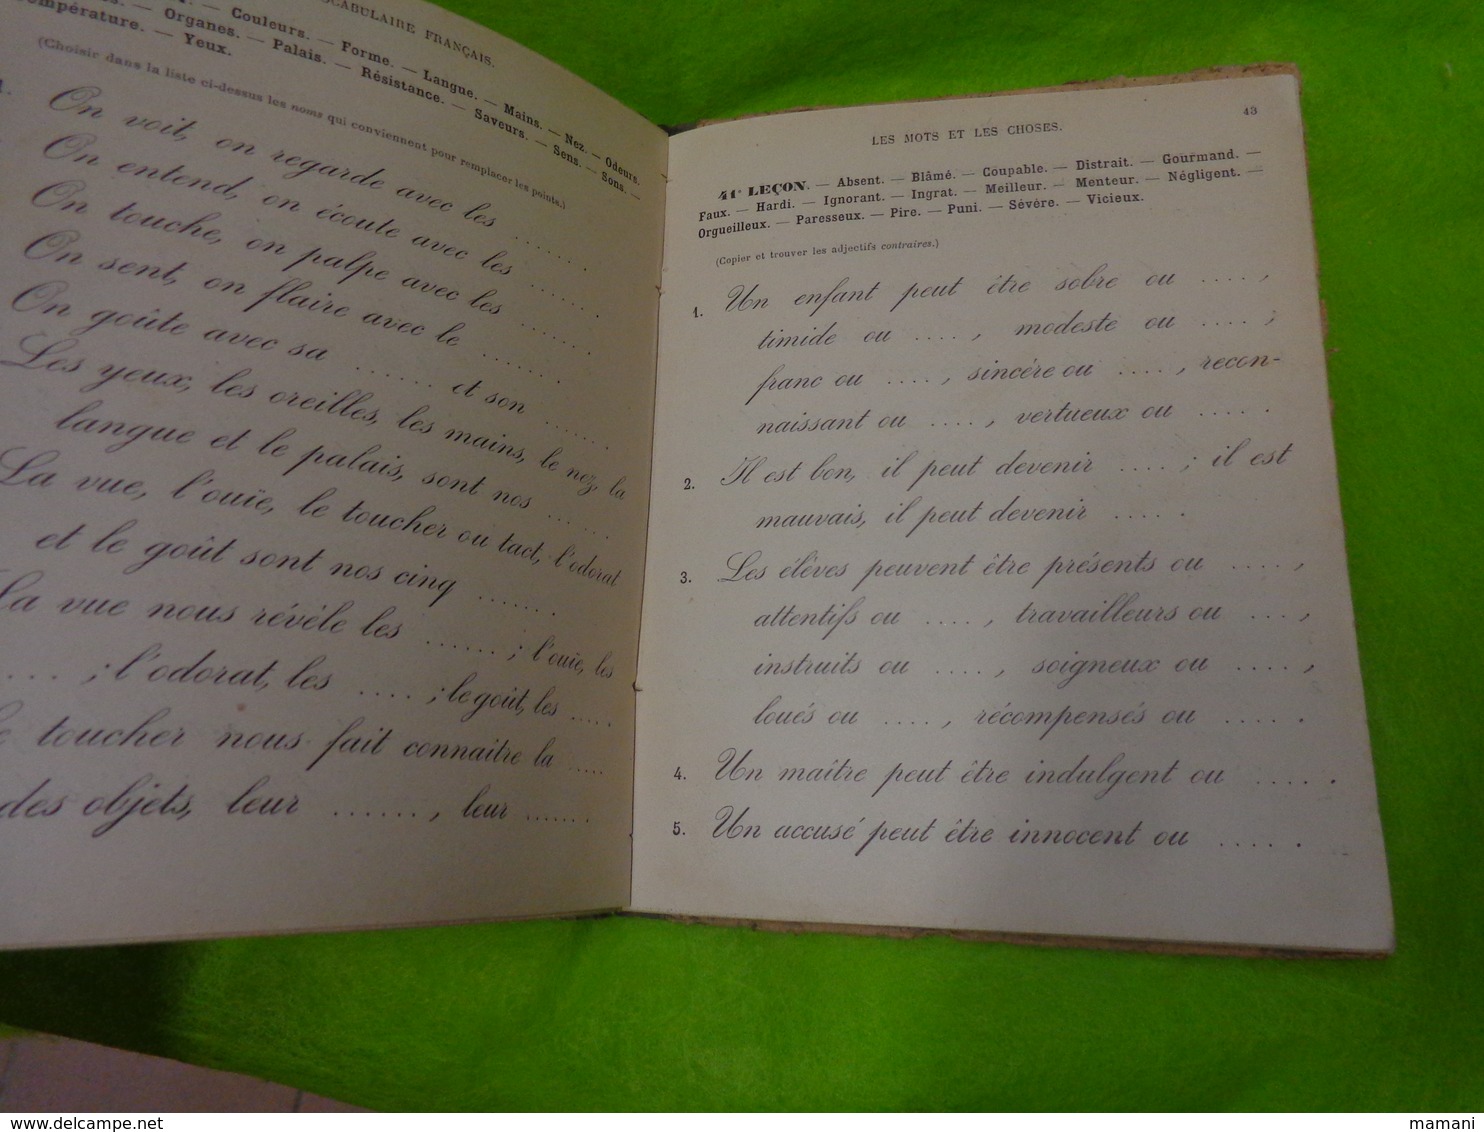 VOCABULAIRE FRANÇAIS.
Couleurs. — Forme. — Langue. — Mains. — Nez. — Odeurs.
— Organes. — Palais. — Résistance. — Saveurs. — Sens. — Sons. —
Température. — Yeux.
(Choisir dans la liste ci-dessus les noms qui conviennent pour remplacer les points.)
1. On voit, on regarde avec les ......
On entend, on écoute avec les .......
On touche, on palpe avec les .......
On sent, on flaire avec le .......
On goûte avec sa ...... et son .......
Les yeux, les oreilles, les mains, le nez, la
langue et le palais, sont nos ......
La vue, l'ouïe, le toucher ou tact, l'odorat
et le goût sont nos cinq .......
La vue nous révèle les ......; l'ouïe, les
....; l'odorat, les ....; le goût, les .....
toucher nous fait connaître la .....
des objets, leur ......, leur .......
LES MOTS ET LES CHOSES.
43
41e LEÇON. — Absent. — Blâmé. — Coupable. — Distrait. — Gourmand. —
Faux. — Hardi. — Ignorant. — Ingrat. — Meilleur. — Menteur. — Négligent. —
Orgueilleux. — Paresseux. — Pire. — Puni. — Sévère. — Vicieux.
(Copier et trouver les adjectifs contraires.)
1. Un enfant peut être sobre ou ....,
timide ou ...., modeste ou ....,
franc ou ...., sincère ou ...., recon-
naissant ou ...., vertueux ou .....
2. Il est bon, il peut devenir ....; il est
mauvais, il peut devenir .....
3. Les élèves peuvent être présents ou ....,
attentifs ou ...., travailleurs ou ....,
instruits ou ...., soigneux ou ....,
loués ou ...., récompensés ou .....
4. Un maître peut être indulgent ou .....
5. Un accusé peut être innocent ou .....
mamani